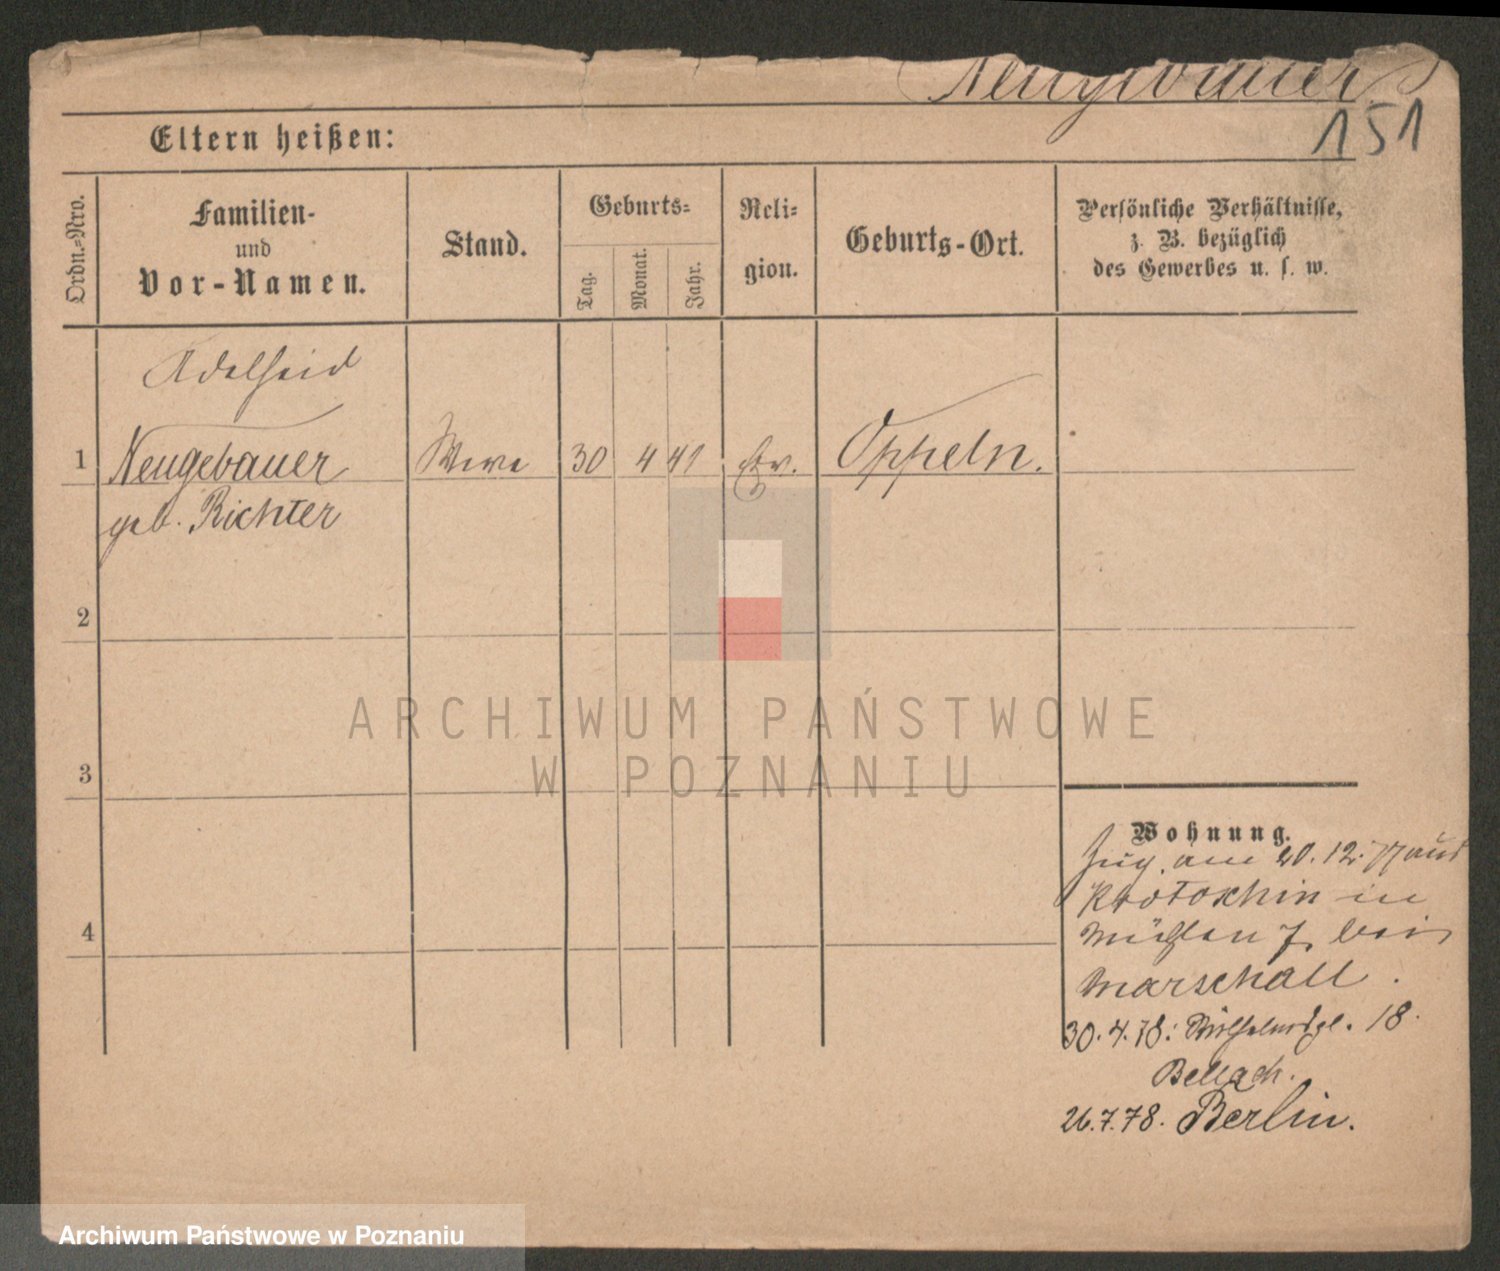 Neugebauer
151
Eltern heißen:
Ordn.-Nro.
Familien-
und
Vor-Namen.
Stand.
Geburts-
Tag.
Monat.
Jahr.
Reli-
gion.
Geburts-Ort.
Persönliche Verhältnisse,
z. B. bezüglich
des Gewerbes u. s. w.
Adelheid
1 Neugebauer Wwe 30 4 41 Ev. Oppeln.
geb. Richter
2
3
4
ARCHIWUM PAŃSTWOWE
W POZNANIU
Wohnung.
Zug. am 20.12.77 aus
Krotoschin in
Mühlen 7. bei
Marschall.
30.4.78: 18.
Bellach.
26.7.78. Berlin.
Archiwum Państwowe w Poznaniu